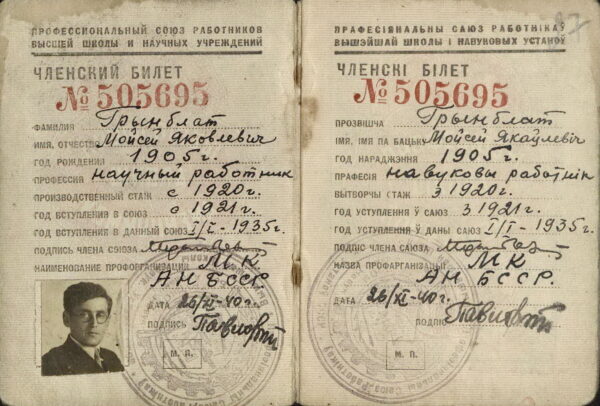 ПРОФЕССИОНАЛЬНЫЙ СОЮЗ РАБОТНИКОВ
ВЫСШЕЙ ШКОЛЫ И НАУЧНЫХ УЧРЕЖДЕНИЙ
ЧЛЕНСКИЙ БИЛЕТ
№ 505695
ФАМИЛИЯ Грынблат
ИМЯ, ОТЧЕСТВО Мойсей Яковлевич
ГОД РОЖДЕНИЯ 1905 г.
ПРОФЕССИЯ научный работник
ПРОИЗВОДСТВЕННЫЙ СТАЖ с 1920 г.
ГОД ВСТУПЛЕНИЯ В СОЮЗ с 1921 г.
ГОД ВСТУПЛЕНИЯ В ДАННЫЙ СОЮЗ I/I - 1935 г.
ПОДПИСЬ ЧЛЕНА СОЮЗА
НАИМЕНОВАНИЕ ПРОФОРГАНИЗАЦИИ МК
АН БССР.
ДАТА 26/XI-40 г.
ПОДПИСЬ
М. П.
ПРАФЕСІЯНАЛЬНЫ САЮЗ РАБОТНІКАЎ
ВЫШЭЙШАЙ ШКОЛЫ І НАВУКОВЫХ УСТАНОЎ
ЧЛЕНСКІ БІЛЕТ
№ 505695
ПРОЗВІШЧА Грынблат
ІМЯ, ІМЯ ПА БАЦЬКУ Мойсей Якаўлевіч
ГОД НАРАДЖЭННЯ 1905 г.
ПРАФЕСІЯ навуковы работнік
ВЫТВОРЧЫ СТАЖ з 1920 г.
ГОД УСТУПЛЕННЯ Ў САЮЗ з 1921 г.
ГОД УСТУПЛЕННЯ Ў ДАНЫ САЮЗ I/I - 1935 г.
ПОДПІС ЧЛЕНА САЮЗА
НАЗВА ПРОФАРГАНІЗАЦЫІ МК
АН БССР.
ДАТА 26/XI-40 г.
ПОДПІС
М. П.